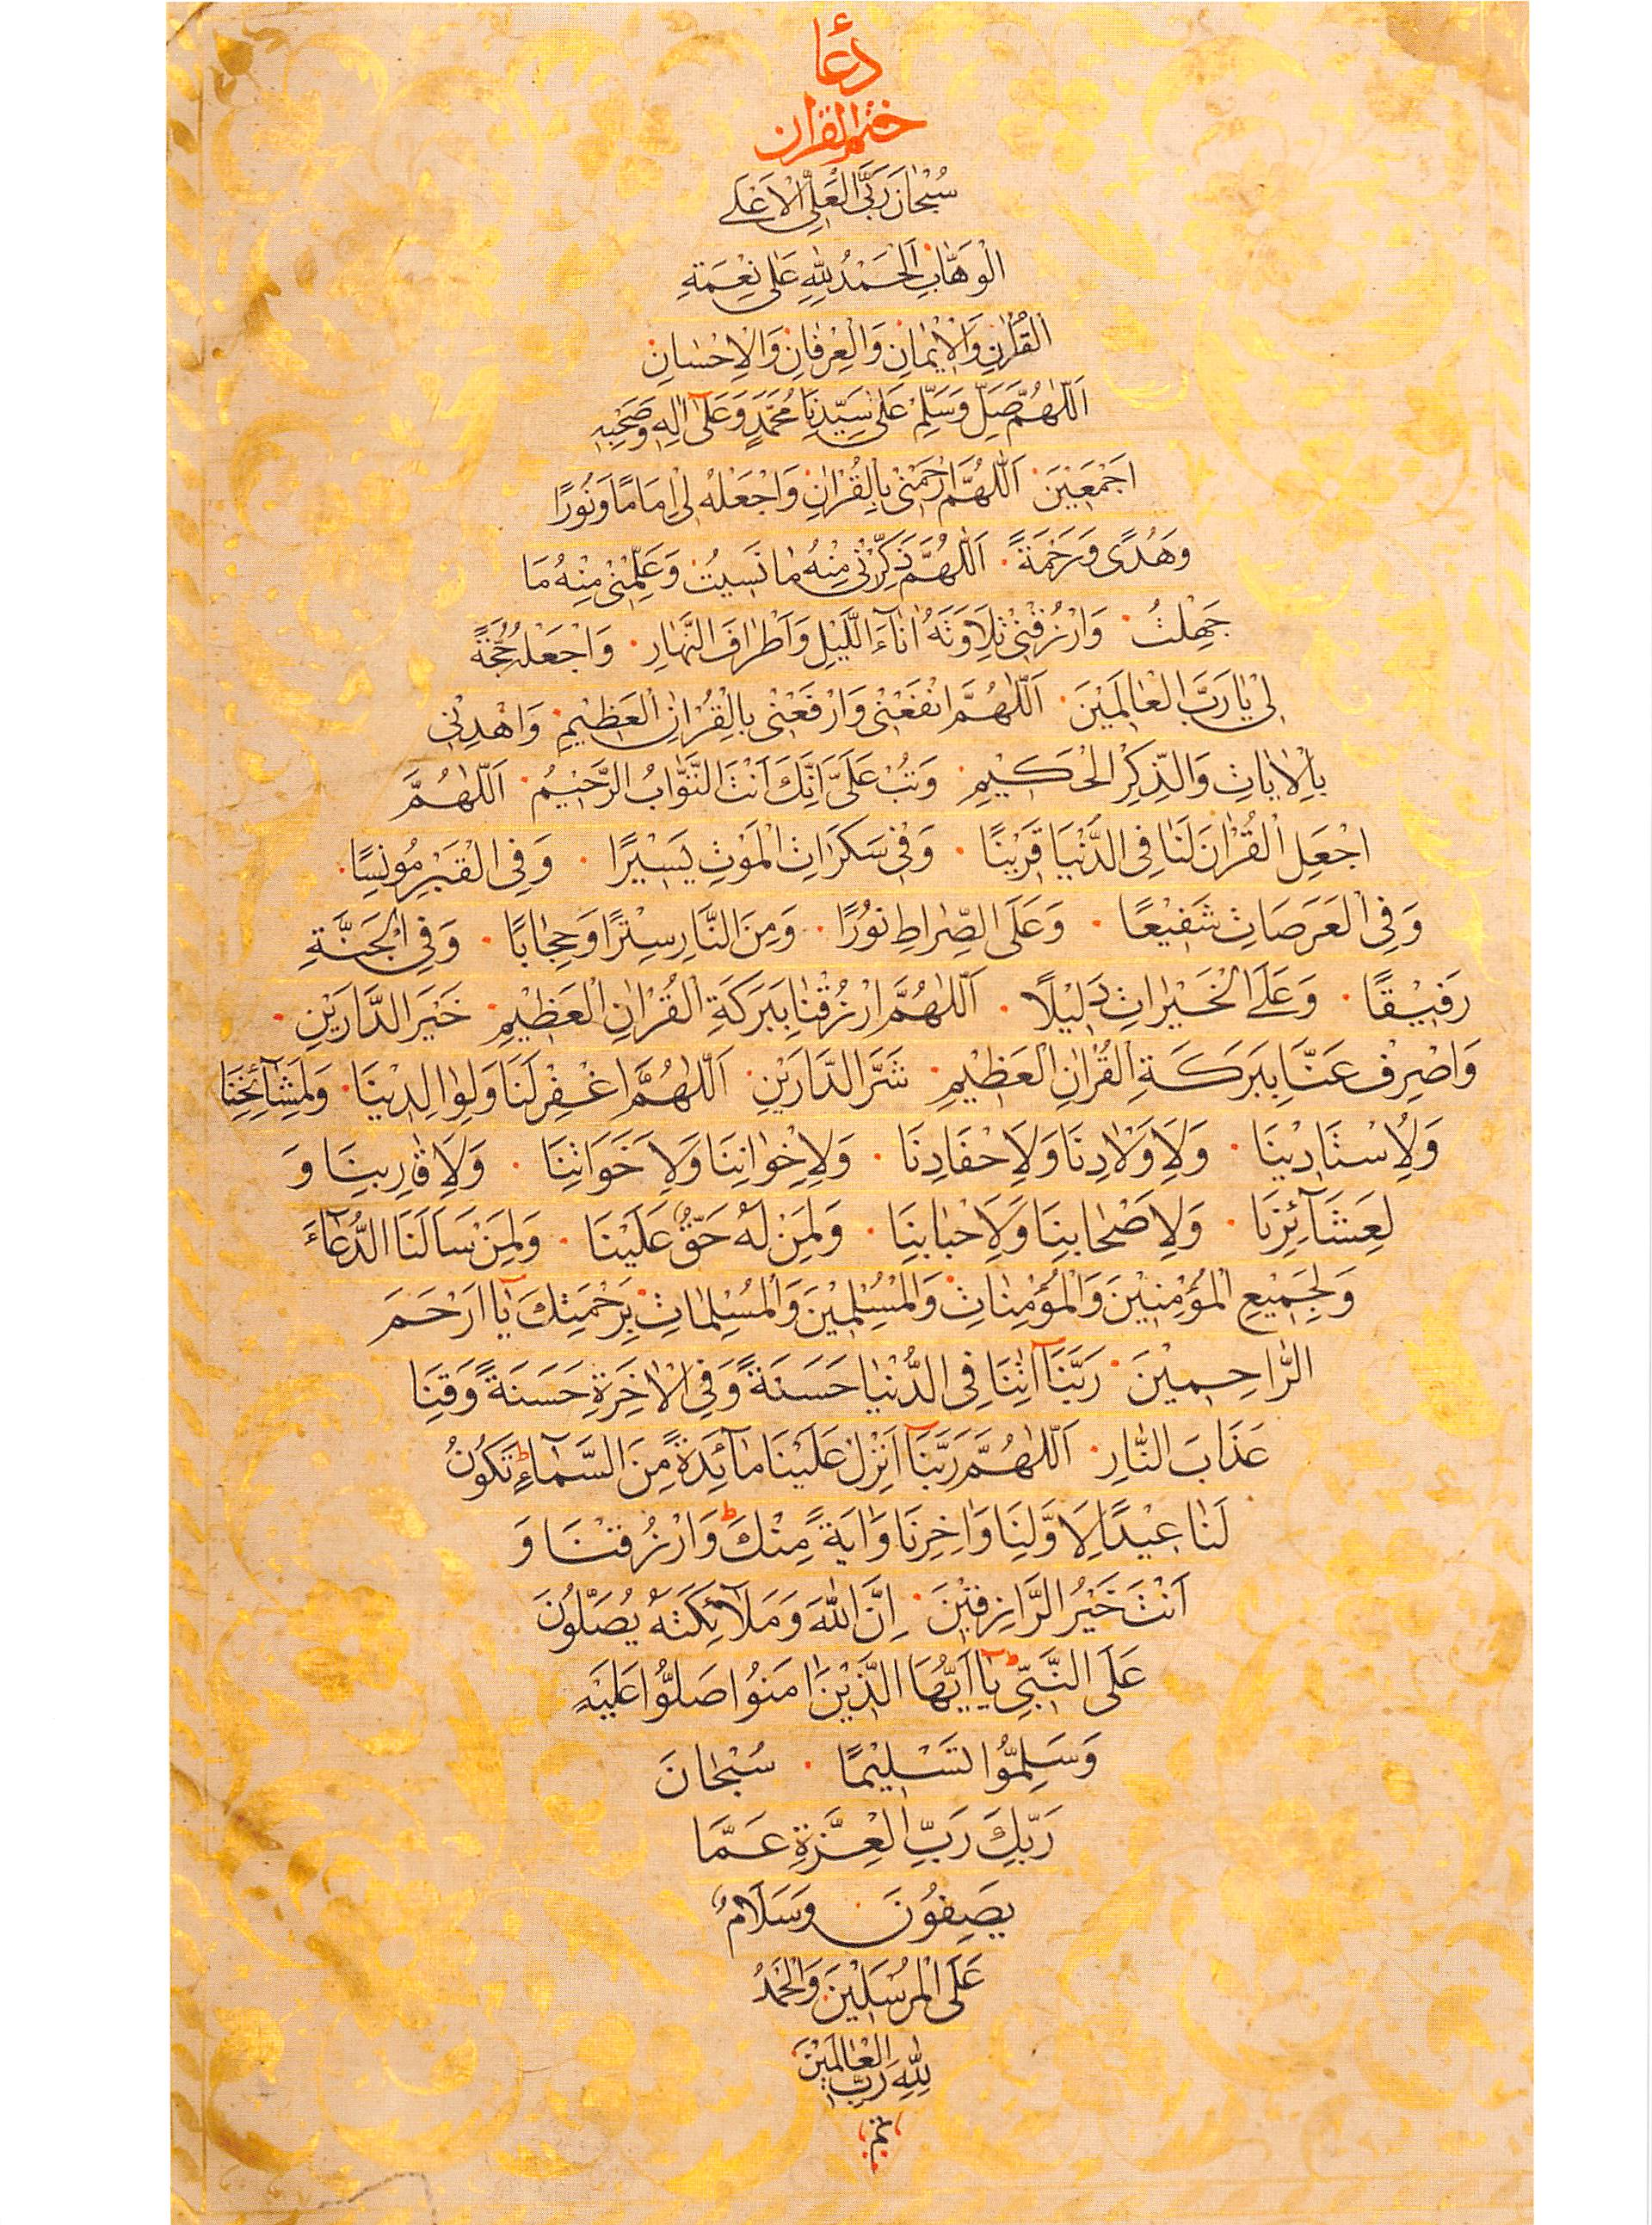 دُعَاء
ختم القران
سُبْحَانَ رَبِّيَ الْعَلِيِّ الْاَعْلَى
الْوَهَّابِ اَلْحَمْدُ لِلّٰهِ عَلٰى نِعْمَةِ
الْقُرْاٰنِ وَالْاِيْمَانِ وَالْعِرْفَانِ وَالْاِحْسَانِ
اَللّٰهُمَّ صَلِّ وَسَلِّمْ عَلٰى سَيِّدِنَا مُحَمَّدٍ وَعَلٰٓى اٰلِهٖ وَصَحْبِهٖ
اَجْمَعِيْنَ اَللّٰهُمَّ ارْحَمْنِيْ بِالْقُرْاٰنِ وَاجْعَلْهُ لِيْ اِمَامًا وَنُوْرًا
وَهُدًى وَرَحْمَةً اَللّٰهُمَّ ذَكِّرْنِيْ مِنْهُ مَا نَسِيْتُ وَعَلِّمْنِيْ مِنْهُ مَا
جَهِلْتُ وَارْزُقْنِيْ تِلَاوَتَهُ اٰنَآءَ اللَّيْلِ وَاَطْرَافَ النَّهَارِ وَاجْعَلْهُ حُجَّةً
لِيْ يَا رَبَّ الْعَالَمِيْنَ اَللّٰهُمَّ انْفَعْنِيْ وَارْفَعْنِيْ بِالْقُرْاٰنِ الْعَظِيْمِ وَاهْدِنِيْ
بِالْاٰيَاتِ وَالذِّكْرِ الْحَكِيْمِ وَتُبْ عَلَيَّ اِنَّكَ اَنْتَ التَّوَّابُ الرَّحِيْمُ اَللّٰهُمَّ
اجْعَلِ الْقُرْاٰنَ لَنَا فِي الدُّنْيَا قَرِيْنًا وَفِيْ سَكَرَاتِ الْمَوْتِ يَسِيْرًا وَفِي الْقَبْرِ مُوْنِسًا
وَفِي الْعَرَصَاتِ شَفِيْعًا وَعَلَى الصِّرَاطِ نُوْرًا وَمِنَ النَّارِ سِتْرًا وَحِجَابًا وَفِي الْجَنَّةِ
رَفِيْقًا وَعَلَى الْخَيْرَاتِ دَلِيْلًا اَللّٰهُمَّ ارْزُقْنَا بِبَرَكَةِ الْقُرْاٰنِ الْعَظِيْمِ خَيْرَ الدَّارَيْنِ
وَاصْرِفْ عَنَّا بِبَرَكَةِ الْقُرْاٰنِ الْعَظِيْمِ شَرَّ الدَّارَيْنِ اَللّٰهُمَّ اغْفِرْ لَنَا وَلِوَالِدِيْنَا وَلِمَشَآئِخِنَا
وَلِاُسْتَادِيْنَا وَلِاَوْلَادِنَا وَلِاَحْفَادِنَا وَلِاِخْوَانِنَا وَلِاَخَوَاتِنَا وَلِاَقَارِبِنَا وَ
لِعَشَآئِرِنَا وَلِاَصْحَابِنَا وَلِاَحْبَابِنَا وَلِمَنْ لَهُ حَقٌّ عَلَيْنَا وَلِمَنْ سَاَلَنَا الدُّعَآءَ
وَلِجَمِيْعِ الْمُؤْمِنِيْنَ وَالْمُؤْمِنَاتِ وَالْمُسْلِمِيْنَ وَالْمُسْلِمَاتِ بِرَحْمَتِكَ يَآ اَرْحَمَ
الرَّاحِمِيْنَ رَبَّنَآ اٰتِنَا فِي الدُّنْيَا حَسَنَةً وَفِي الْاٰخِرَةِ حَسَنَةً وَقِنَا
عَذَابَ النَّارِ اَللّٰهُمَّ رَبَّنَآ اَنْزِلْ عَلَيْنَا مَآئِدَةً مِنَ السَّمَآءِ تَكُوْنُ
لَنَا عِيْدًا لِاَوَّلِنَا وَاٰخِرِنَا وَاٰيَةً مِنْكَ وَارْزُقْنَا وَ
اَنْتَ خَيْرُ الرَّازِقِيْنَ اِنَّ اللّٰهَ وَمَلَآئِكَتَهُ يُصَلُّوْنَ
عَلَى النَّبِيِّ يَآ اَيُّهَا الَّذِيْنَ اٰمَنُوْا صَلُّوْا عَلَيْهِ
وَسَلِّمُوْا تَسْلِيْمًا سُبْحَانَ
رَبِّكَ رَبِّ الْعِزَّةِ عَمَّا
يَصِفُوْنَ وَسَلَامٌ
عَلَى الْمُرْسَلِيْنَ وَالْحَمْدُ
لِلّٰهِ رَبِّ الْعَالَمِيْنَ
تم